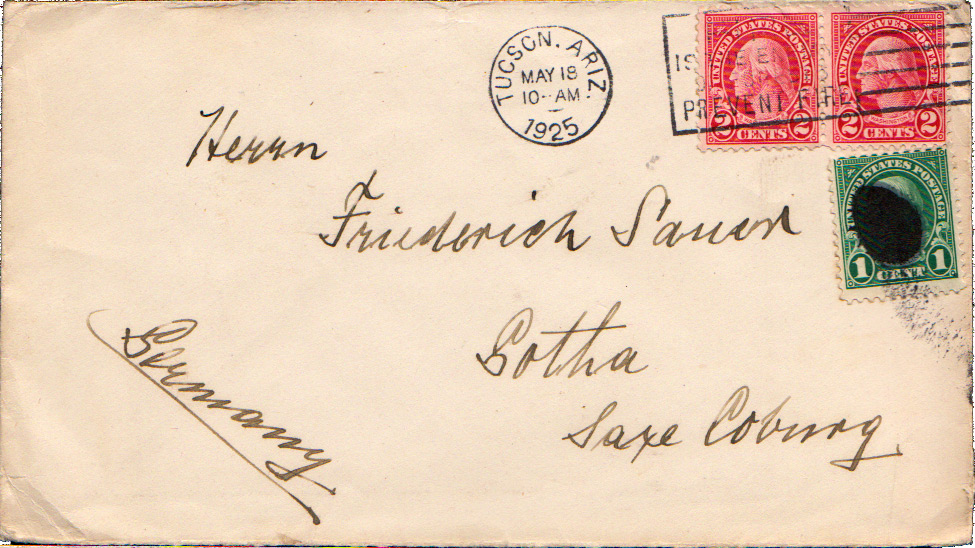 TUCSON, ARIZ.
MAY 18
10-AM
1925
IS
PREVENT FIRE
UNITED STATES POSTAGE
2 CENTS 2
UNITED STATES POSTAGE
2 CENTS 2
UNITED STATES POSTAGE
1 CENT 1
Herrn
Friederich Sauer
Gotha
Saxe Coburg
Germany